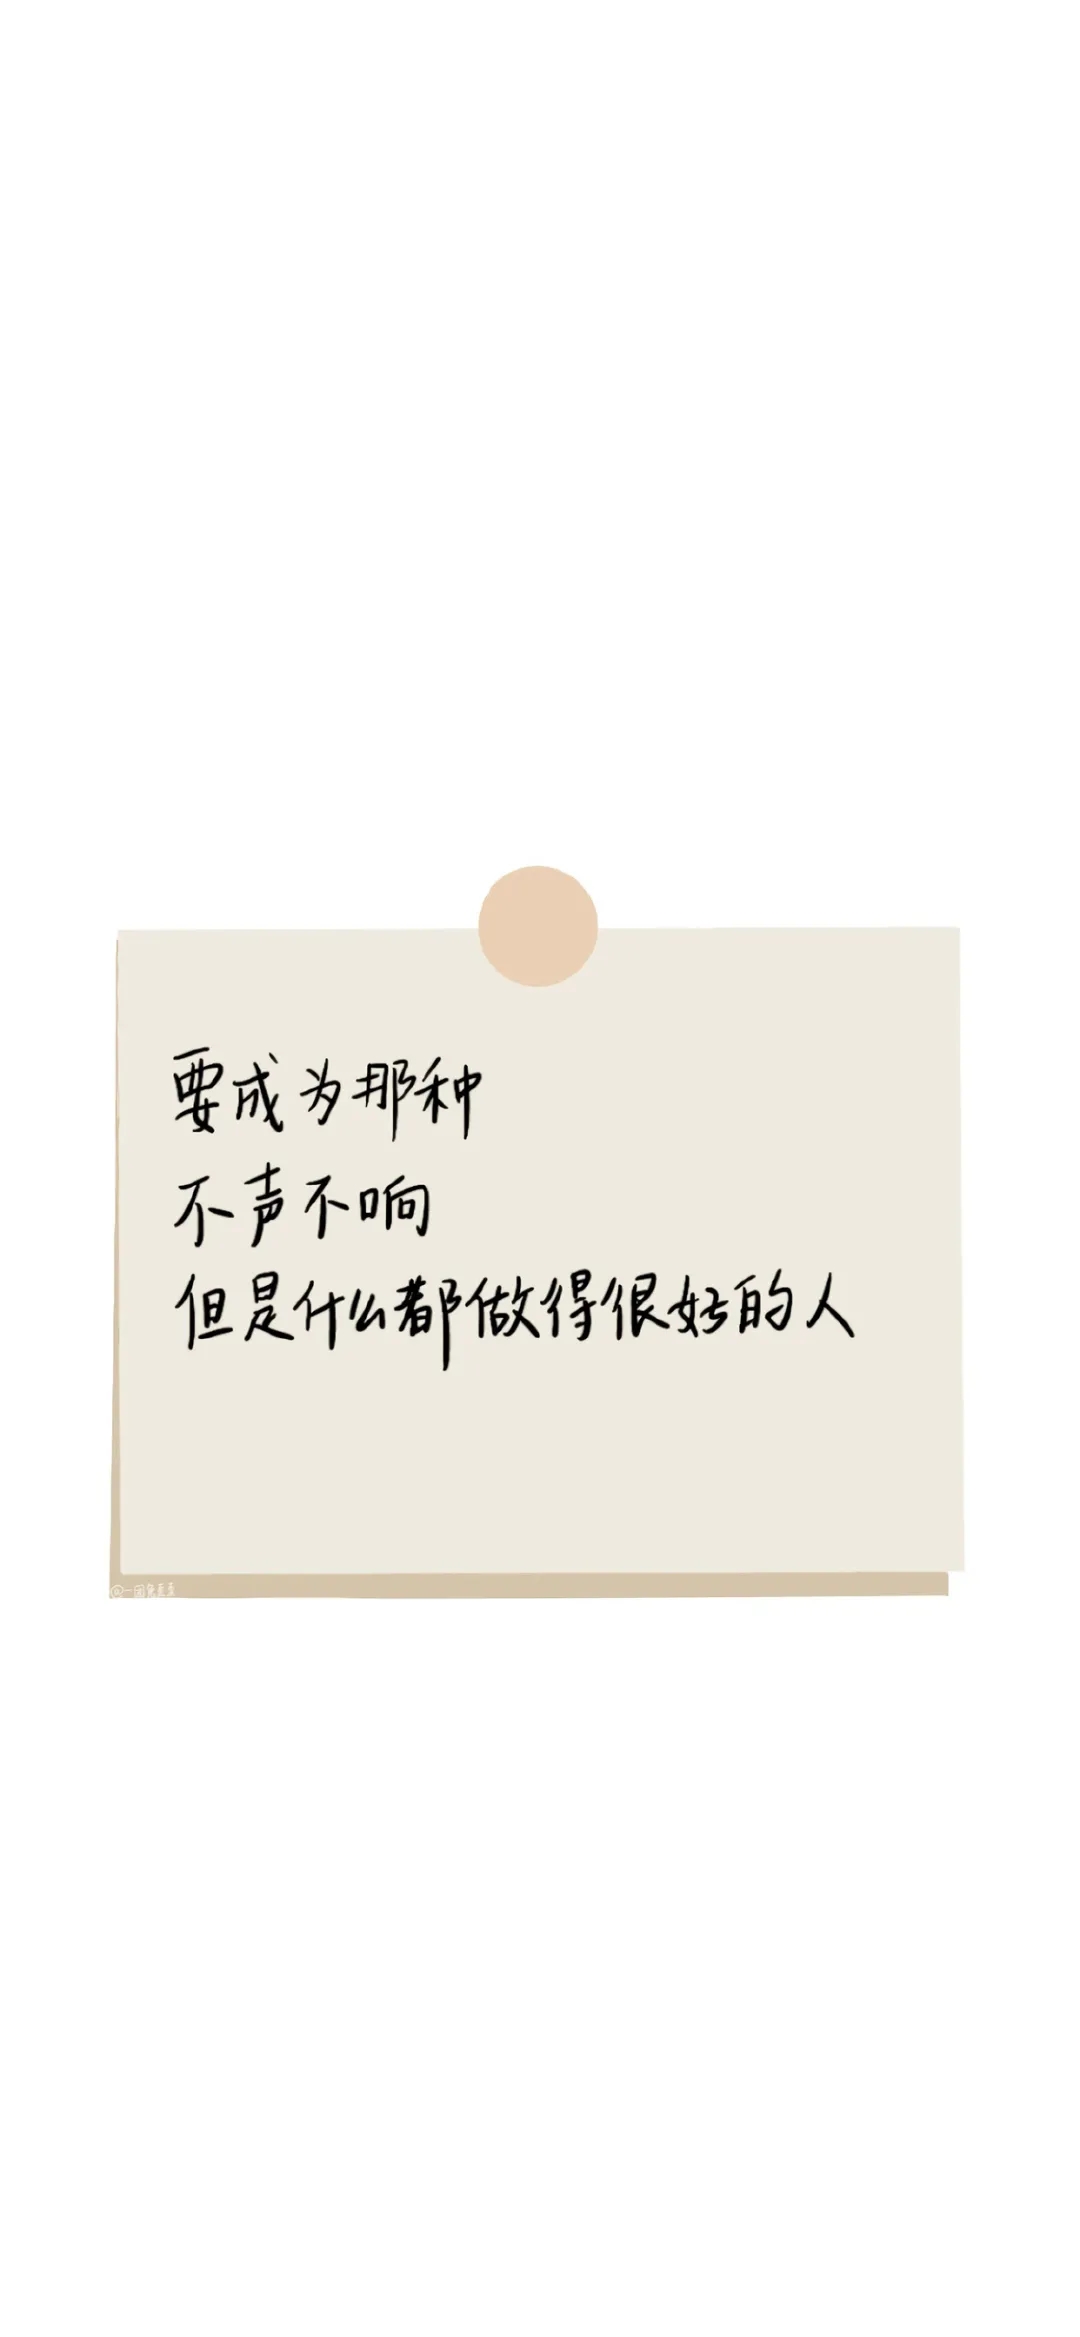 要成为那种
不声不响
但是什么都做得很好的人